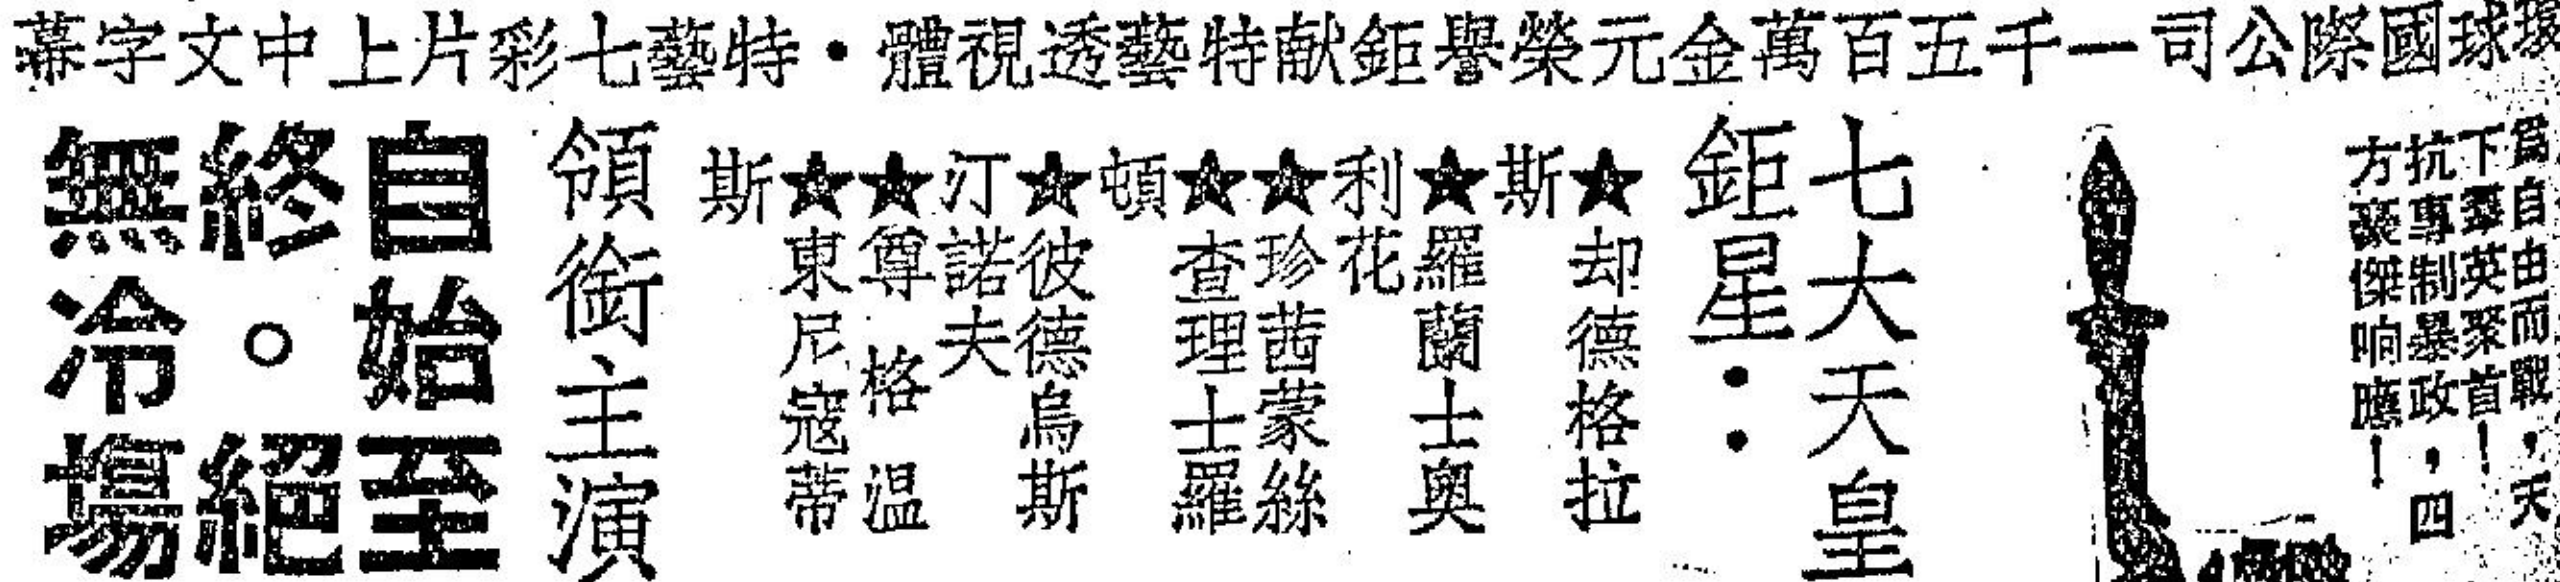 環球國際公司一千五百萬金元榮譽鉅献特藝透視體・特藝七彩片上中文字幕
爲自由而戰，天
下羣英聚首！
抗專制暴政，四
方豪傑响應！
七大天皇
鉅星：
★却德格拉
斯
★羅蘭士奥
利花
★珍茜蒙絲
★查理士羅
頓
★彼德烏斯
汀諾夫
★尊格温
★東尼寇蒂
斯
領銜主演
自始至
終。絕
無冷場